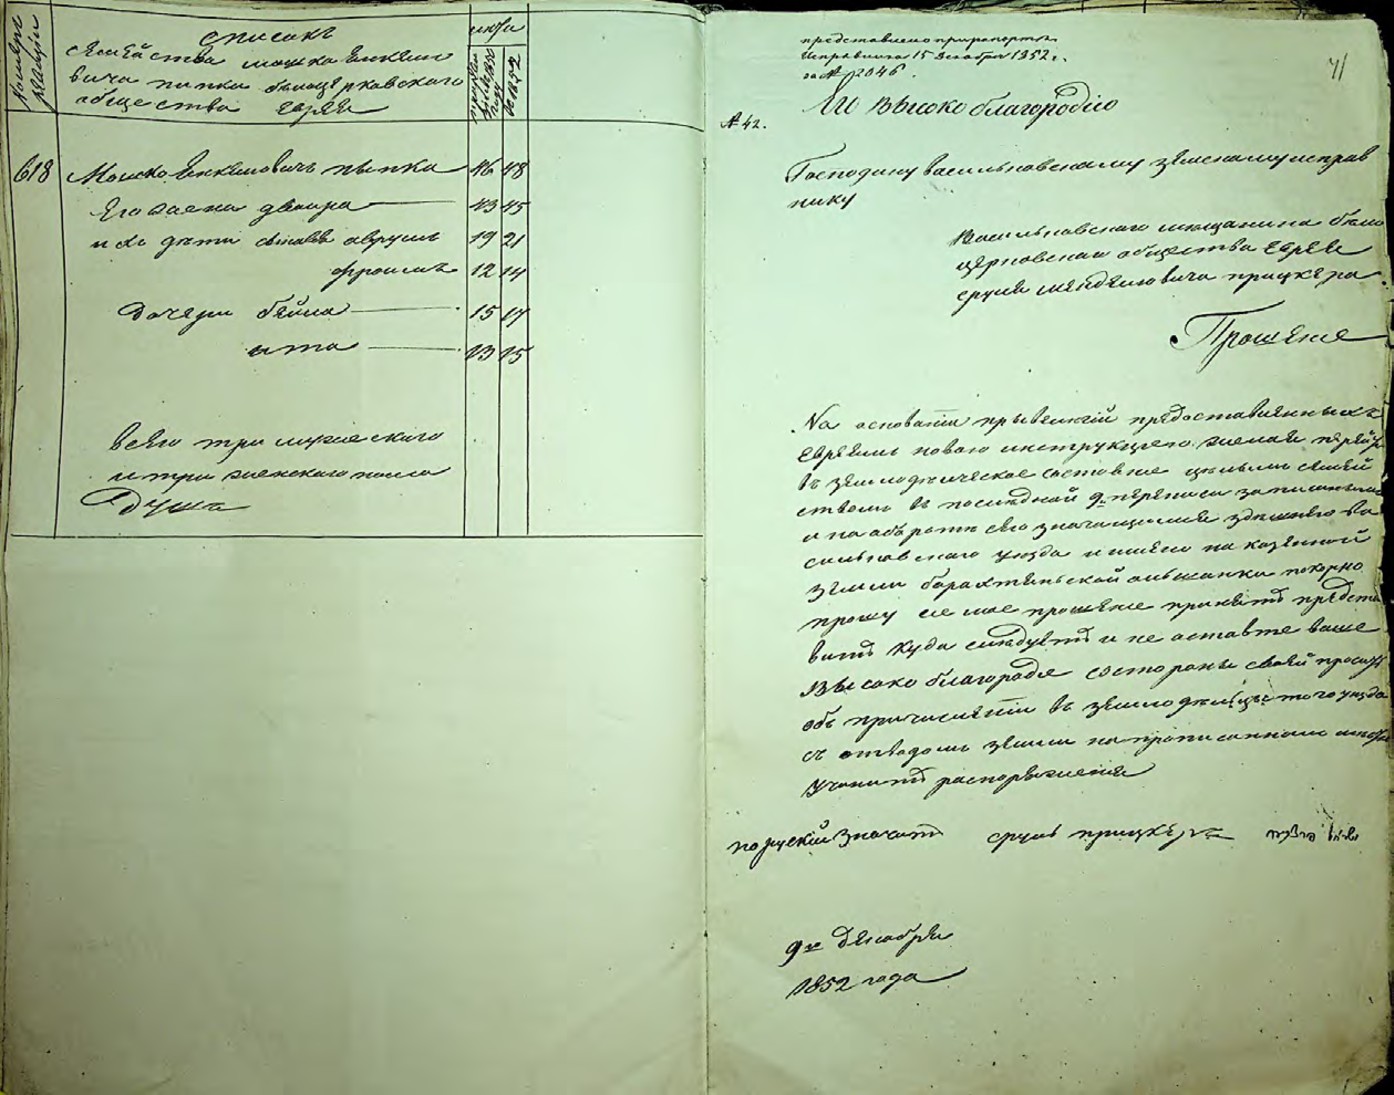 Номеръ
ревизіи
списокъ
семейства мошка янкели
вича пипки бѣлоцерковскаго
общества Еврея
въ 1852
618 Мошко Янкелевичъ пыпка 46 48
Его жена двойра 43 45
ихъ дѣти сыновья авруль 19 21
фроимъ 12 14
Дочери бейла 15 17
ита 13 15
Всего три мужескаго
и три женскаго пола
Душъ
71
представлено при рапортѣ
Исправника 15 декабря 1852 г.
за № 12046.
Его высоко благородію
№ 42.
Господину васильковскому земскому исправ
нику
Васильковскаго мещанина бѣло
церковскаго общества Еврея
сруля мендельовича прицкера
Прошеніе
На основаніи привелегій предоставленныхъ
Евреямъ новою инструкцією желая перейти
въ земледѣлческое состояніе цѣлымъ семей
ствомъ въ послѣдной 9й переписи записанымъ
и на оборотѣ сего значащимся здешнего Ва
сильковскаго уезда имѣнно на казенной
земли барахтянской ольшанки покорно
прошу сіе мое прошеніе принять предста
вить куда слѣдуетъ и не оставте ваше
Высоко благородіе состороны своей просить
объ причисленіи въ земледѣлцы того уезда
съ отводомъ земли на прописанномъ
учинить распоряженія
по руский значитъ сруль прицкеръ
9го Декабря
1852 года